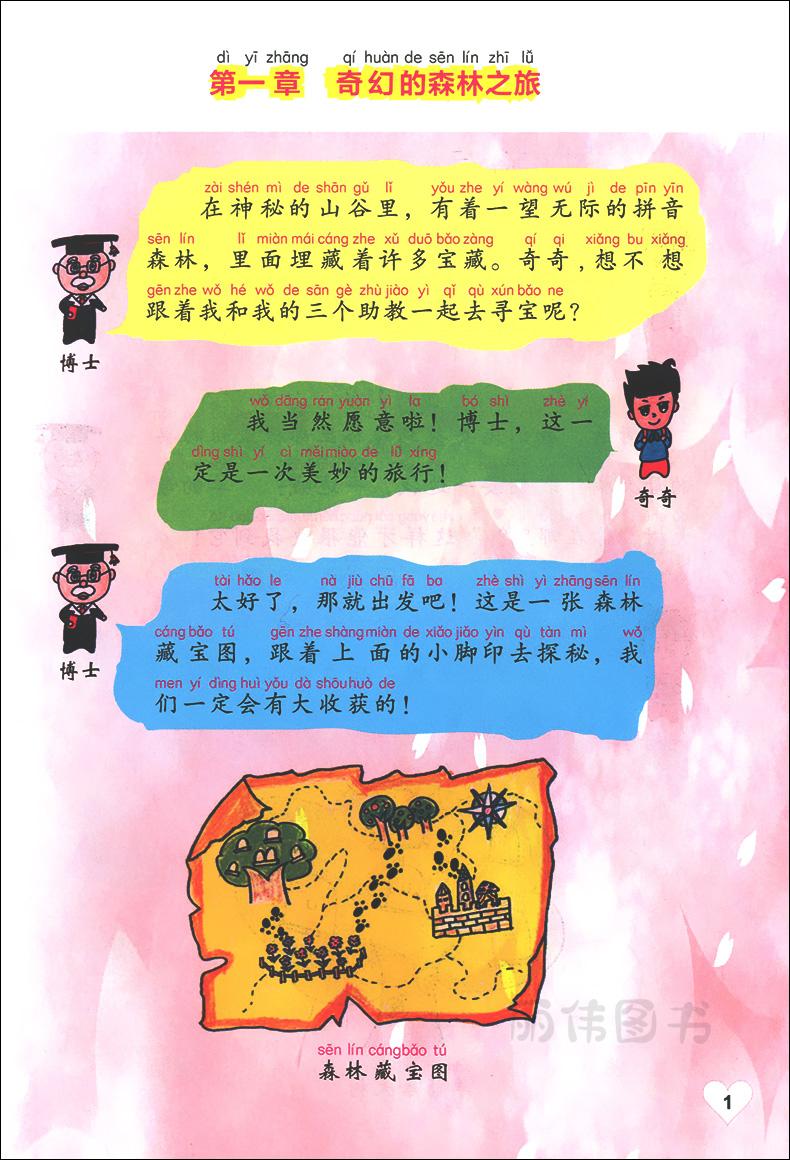 dì yī zhāng qí huàn de sēn lín zhī lǚ
第一章 奇幻的森林之旅
zài shén mì de shān gǔ lǐ yǒu zhe yí wàng wú jì de pīn yīn
在神秘的山谷里，有着一望无际的拼音
sēn lín lǐ miàn mái cáng zhe xǔ duō bǎo zàng qí qi xiǎng bu xiǎng
森林，里面埋藏着许多宝藏。奇奇，想不想
gēn zhe wǒ hé wǒ de sān gè zhù jiào yì qǐ qù xún bǎo ne
跟着我和我的三个助教一起去寻宝呢？
博士
wǒ dāng rán yuàn yì la bó shì zhè yí
我当然愿意啦！博士，这一
dìng shì yí cì měi miào de lǚ xíng
定是一次美妙的旅行！
奇奇
tài hǎo le nà jiù chū fā ba zhè shì yì zhāng sēn lín
太好了，那就出发吧！这是一张森林
cáng bǎo tú gēn zhe shàng miàn de xiǎo jiǎo yìn qù tàn mì wǒ
藏宝图，跟着上面的小脚印去探秘，我
men yí dìng huì yǒu dà shōu huò de
们一定会有大收获的！
博士
丽伟图书
sēn lín cáng bǎo tú
森林藏宝图
1